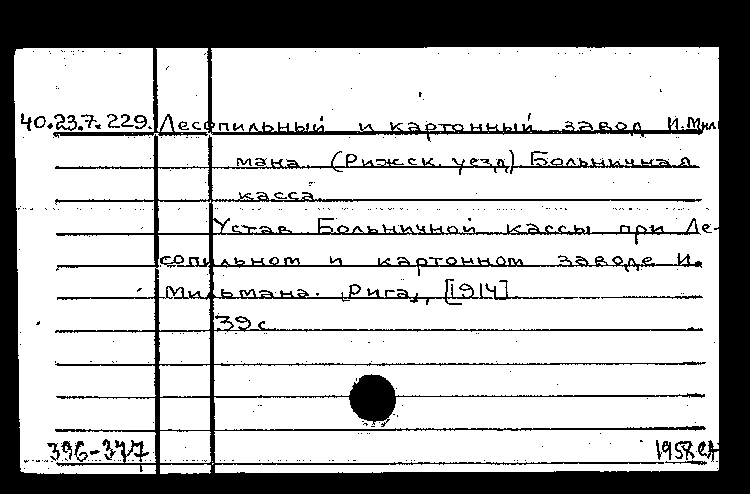 40.23.7.229. Лесопильный и картонный завод И.Миль
мана (Рижск. уезд). Больничная
касса.
Устав Больничной кассы при Ле-
сопильном и картонном заводе И.
Мильмана. Рига, [1914]
39 с
396-377
1958